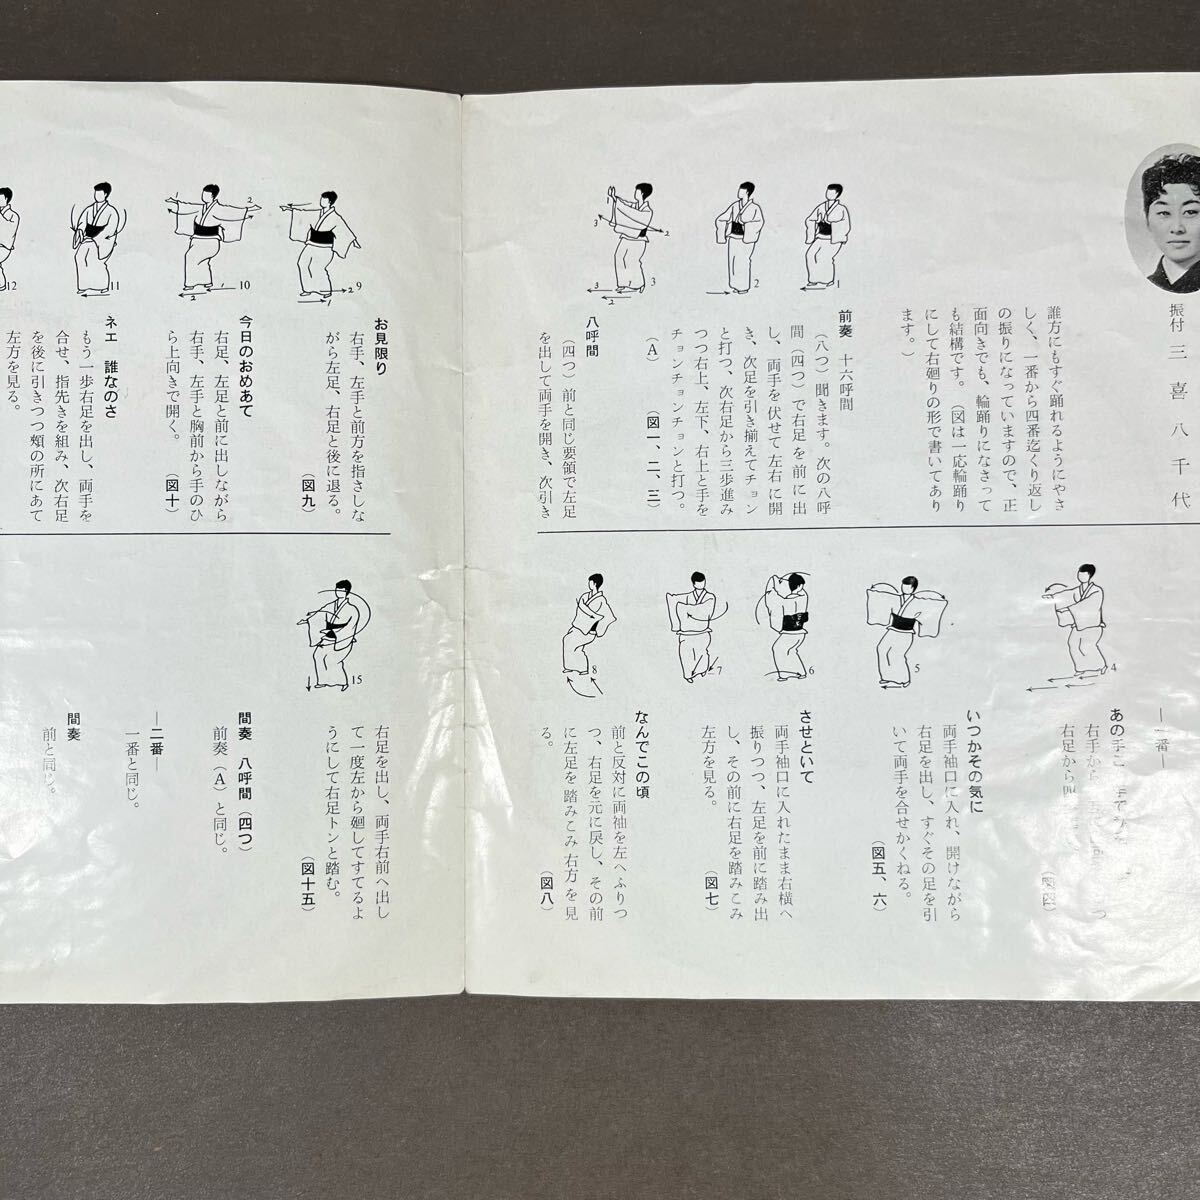 振付 三喜八千代
誰方にもすぐ踊れるようにやさ
しく、一番から四番迄くり返し
の振りになっていますので、正
面向きでも、輪踊りになさって
も結構です。(図は一応輪踊り
にして右廻りの形で書いてあり
ます。)
前奏 十六呼間
(八つ)聞きます。次の八呼
間(四つ)で右足を前に出
し、両手を伏せて左右に開
き、次足を引き揃えてチョン
と打つ、次右足から三歩進み
つつ右上、左下、右上と手を
チョンチョンチョンと打つ。
(A) (図一、二、三)
八呼間
(四つ)前と同じ要領で左足
を出して両手を開き、次引き
1
2
3
2
3
2
3
お見限り
右手、左手と前方を指さしな
がら左足、右足と後に退る。
(図九)
今日のおめあて
右足、左足と前に出しながら
右手、左手と胸前から手のひ
ら上向きで開く。
(図十)
ネエ 誰なのさ
もう一歩右足を出し、両手を
合せ、指先きを組み、次右足
を後に引きつつ頬の所にあて
左方を見る。
9
2
1
10
1
2
2
11
12
―一番―
あの手こ
右手から
右足から四
(図四)
いつかその気に
両手袖口に入れ、開けながら
右足を出し、すぐその足を引
いて両手を合せかくねる。
(図五、六)
させといて
両手袖口に入れたまま右横へ
振りつつ、左足を前に踏み出
し、その前に右足を踏みこみ
左方を見る。
(図七)
なんでこの頃
前と反対に両袖を左へふりつ
つ、右足を元に戻し、その前
に左足を踏みこみ右方を見
る。
(図八)
4
5
6
7
8
右足を出し、両手右前へ出し
て一度左から廻してすてるよ
うにして右足トンと踏む。
(図十五)
間奏 八呼間(四つ)
前奏(A)と同じ。
―二番―
一番と同じ。
間奏
前と同じ。
15